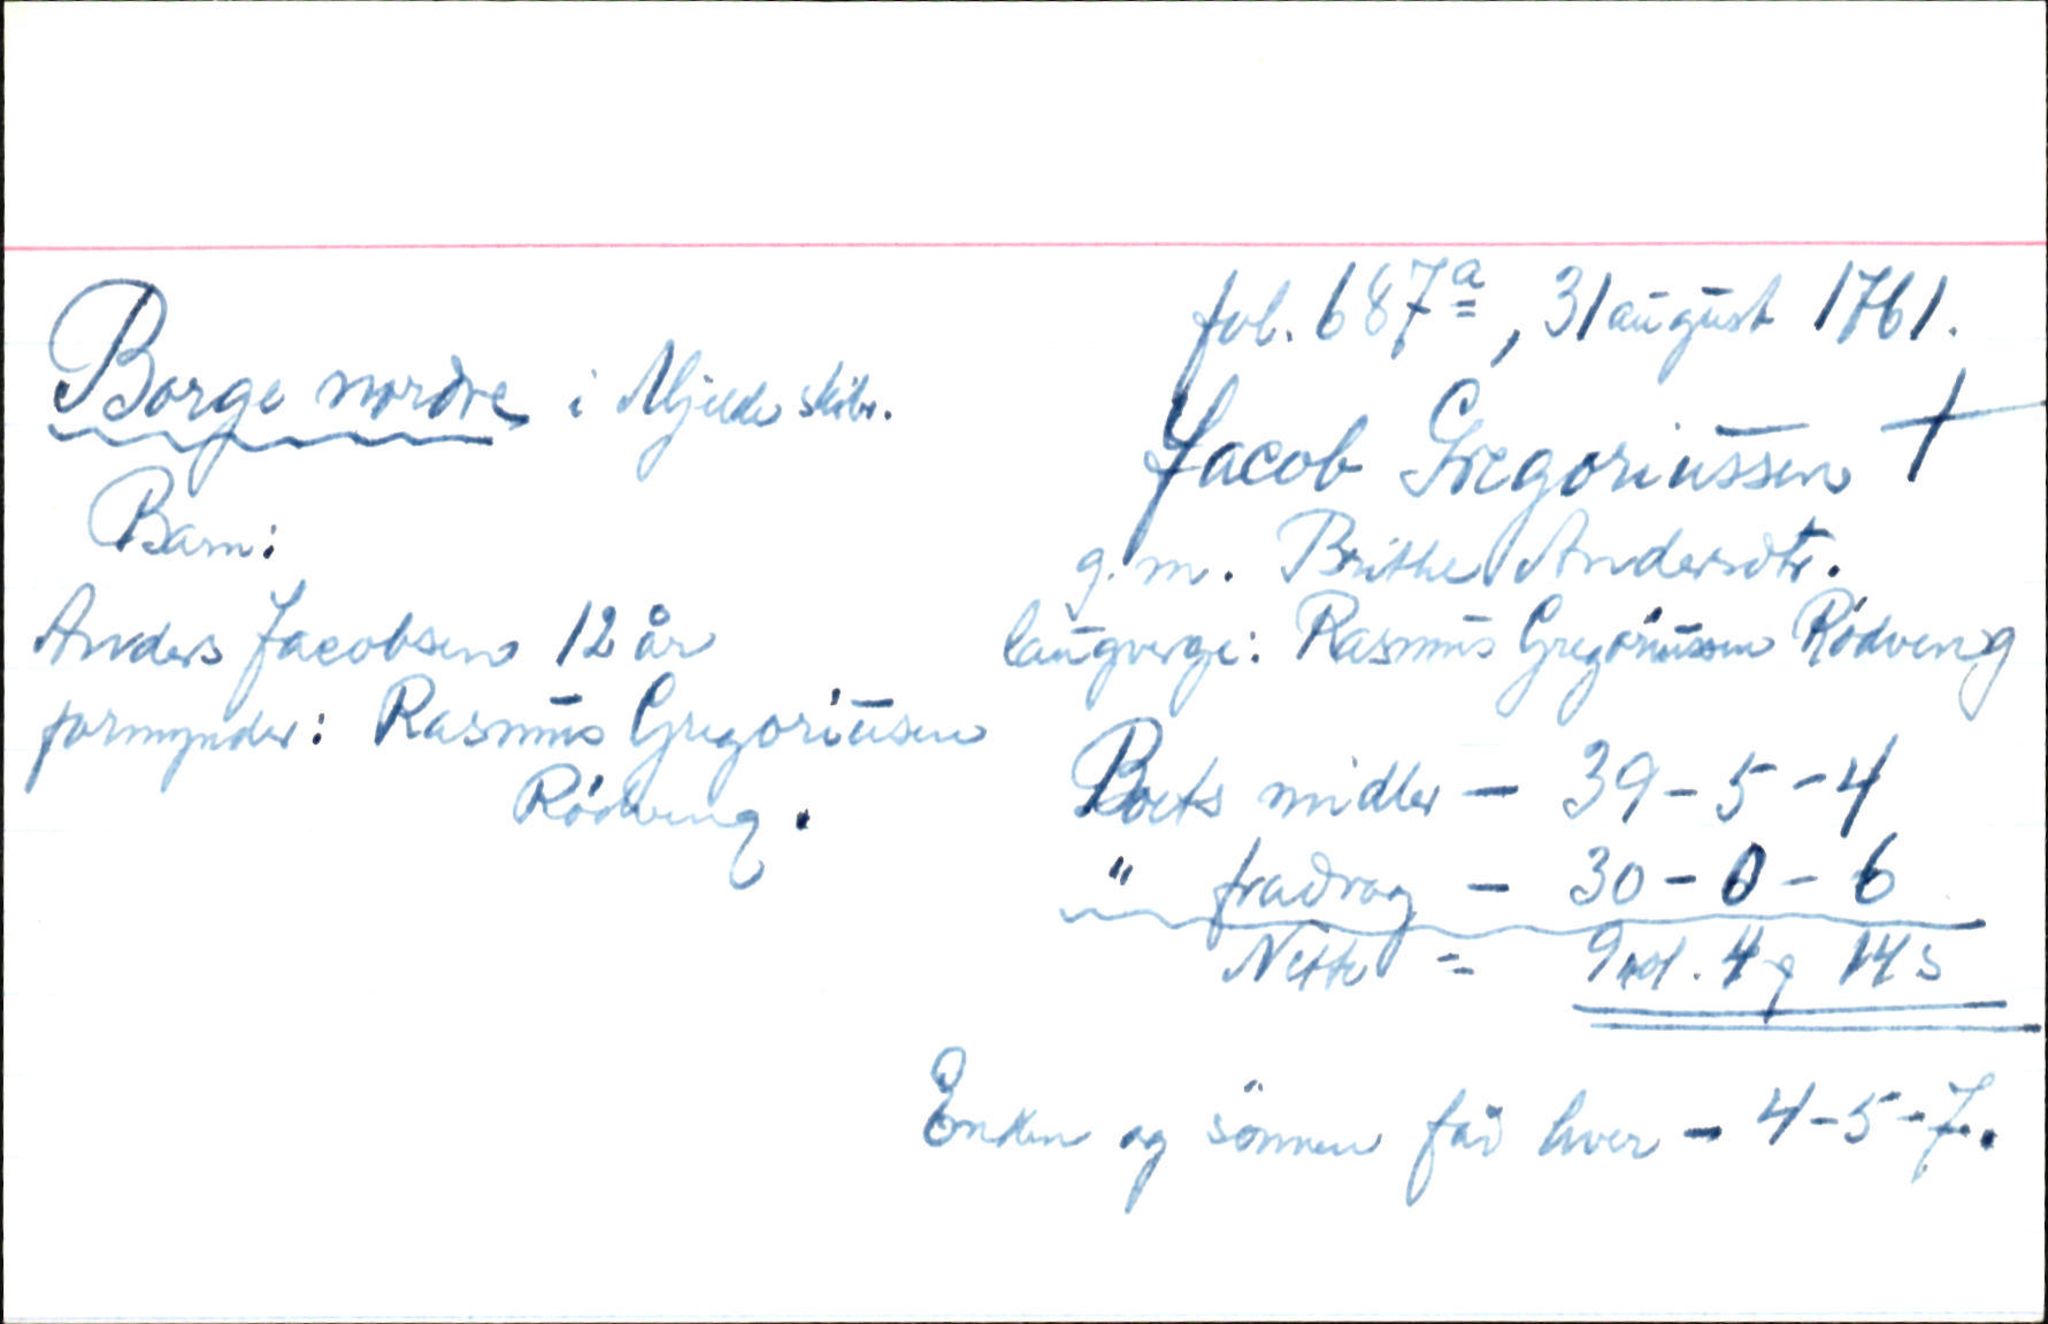 fol. 687ª, 31 august 1761.
Borge nordre i Mjelde skibr.
Jacob Gregoriussen †
g. m. Brithe Andersdtr.
laugverge: Rasmus Gregoriussen Rödveng
Barn:
Anders Jacobsen 12 år
formynder: Rasmus Gregoriusen
Rödveng.
Boets midler - 39-5-4
" fradrag - 30-0-6
Netto = 9 rd. 4 ƍ 14 s
Enken og sönnen får hver - 4-5-7.